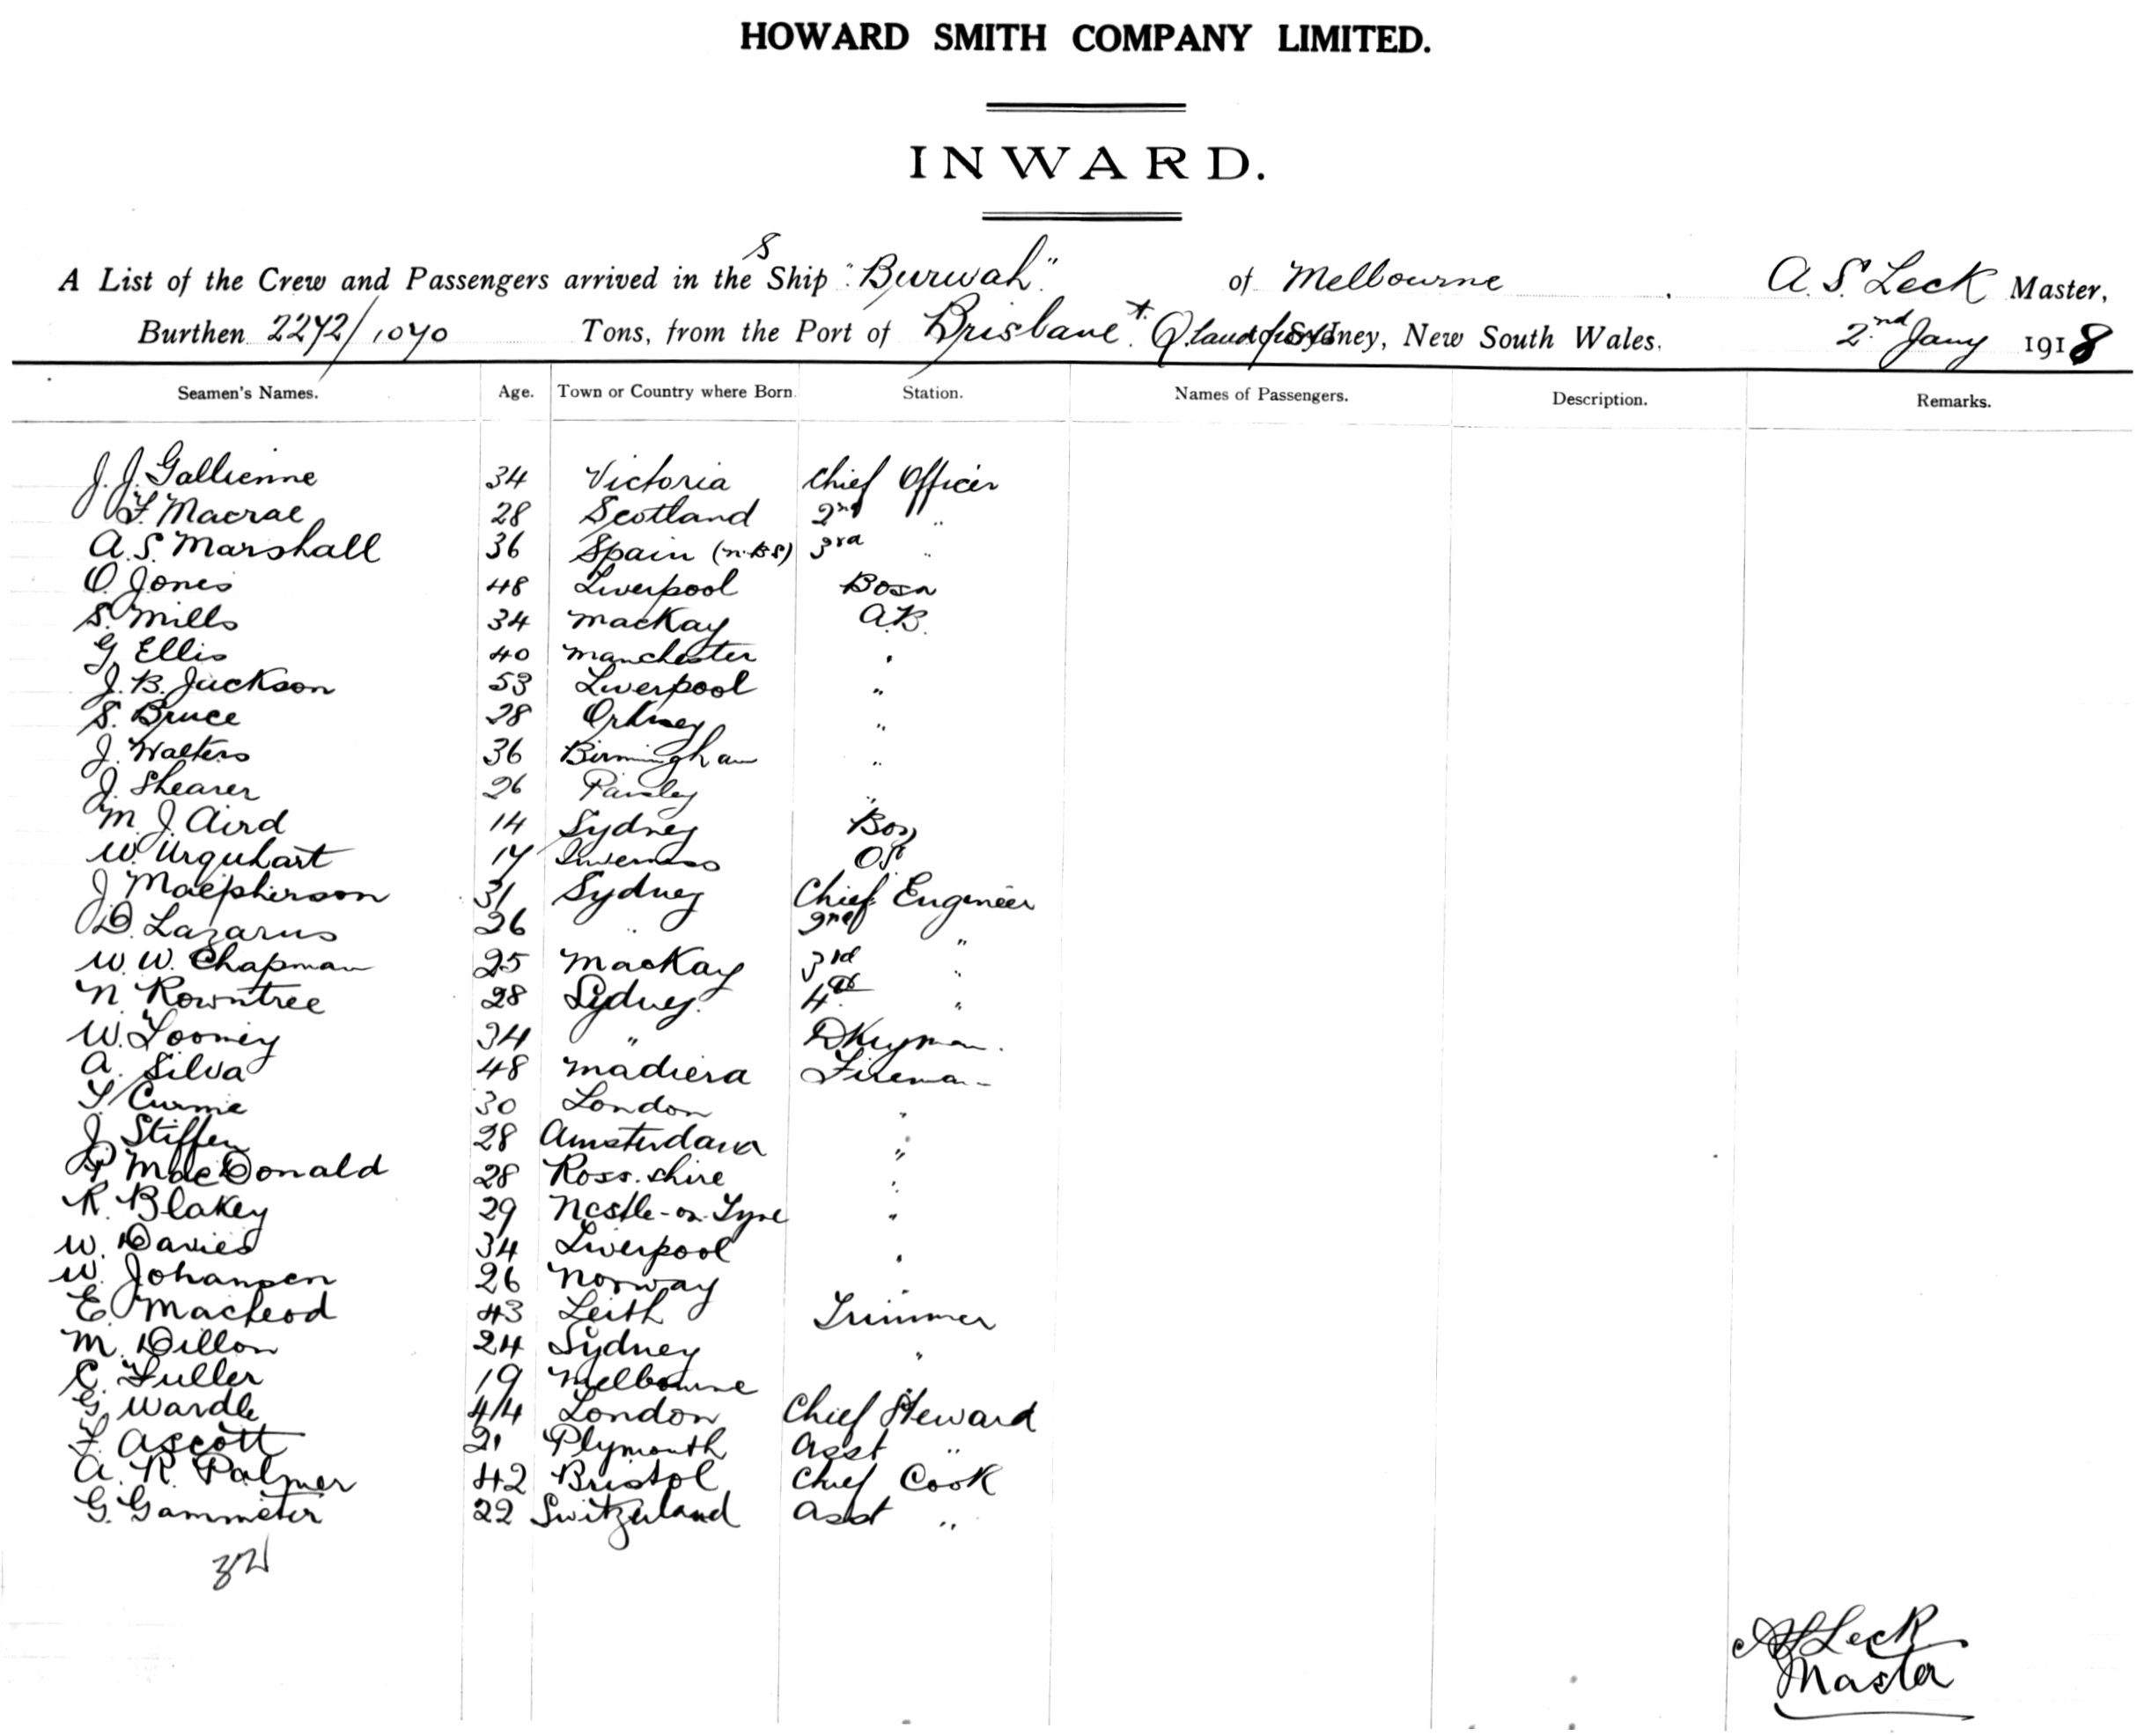 HOWARD SMITH COMPANY LIMITED.
INWARD.
A List of the Crew and Passengers arrived in the S Ship "Burwah" of Melbourne A. S. Leck Master,
Burthen 2272/1070 Tons, from the Port of Brisbane Sydney, New South Wales. 2nd Jany 1918
Seamen's Names. Age. Town or Country where Born. Station. Names of Passengers. Description. Remarks.
J. J. Gallienne 34 Victoria Chief Officer
F. Macrae 28 Scotland 2nd "
A. S. Marshall 36 Spain (N.B.S) 3rd "
O. Jones 48 Liverpool Bosn
S. Mills 34 Mackay A.B.
G Ellis 40 Manchester "
J. B. Jackson 53 Liverpool "
S. Bruce 28 Orkney "
J. Walters 36 Birmingham "
J. Shearer 26 Paisley "
M. J. Aird 14 Sydney Boy
W. Urquhart 17 Inverness OS
J Macpherson 31 Sydney Chief Engineer
D. Lazarus 26 " 2nd "
W. W. Chapman 25 Mackay 3rd "
N Rowntree 28 Sydney. 4th "
W. Looney 34 " DKeyman.
A. Silva 48 Madiera Fireman
Currie 30 London "
J Stiffen 28 Amsterdam "
MacDonald 28 Ross.shire "
R. Blakey 29 Ncstle-on-Tyne "
W. Davies 34 Liverpool "
W. Johansen 26 Norway "
E. Macleod 43 Leith Trimmer
M. Dillon 24 Sydney "
C. Fuller 19 Melbourne "
G. Wardle 44 London Chief Steward
F. Ascott 21 Plymouth Asst "
A. R. Palmer 42 Bristol Chief Cook
G. Gammeter 22 Switzerland Asst "
32
A S Leck
Master